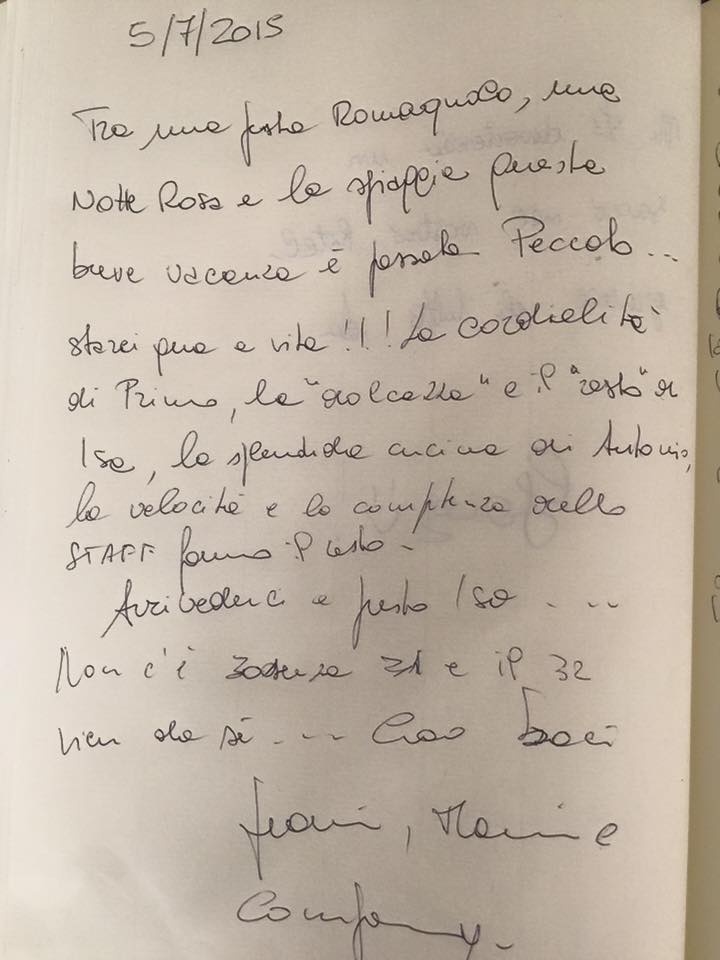 5/7/2015
Tra una festa Romagnola, una
Notte Rosa e la spiaggia questa
breve vacanza è passata Peccato...
starei qua a vita!!! La cordialità
di Primo, la "dolcezza" e il "resto" di
Isa, la splendida cucina di Antonio,
la velocità e la comptenza dello
STAFF fanno il resto.
Arrivederci a presto Isa ....
Non c'è 30 senza 31 e il 32
vien da sè .... Ciao baci
, e
Company.